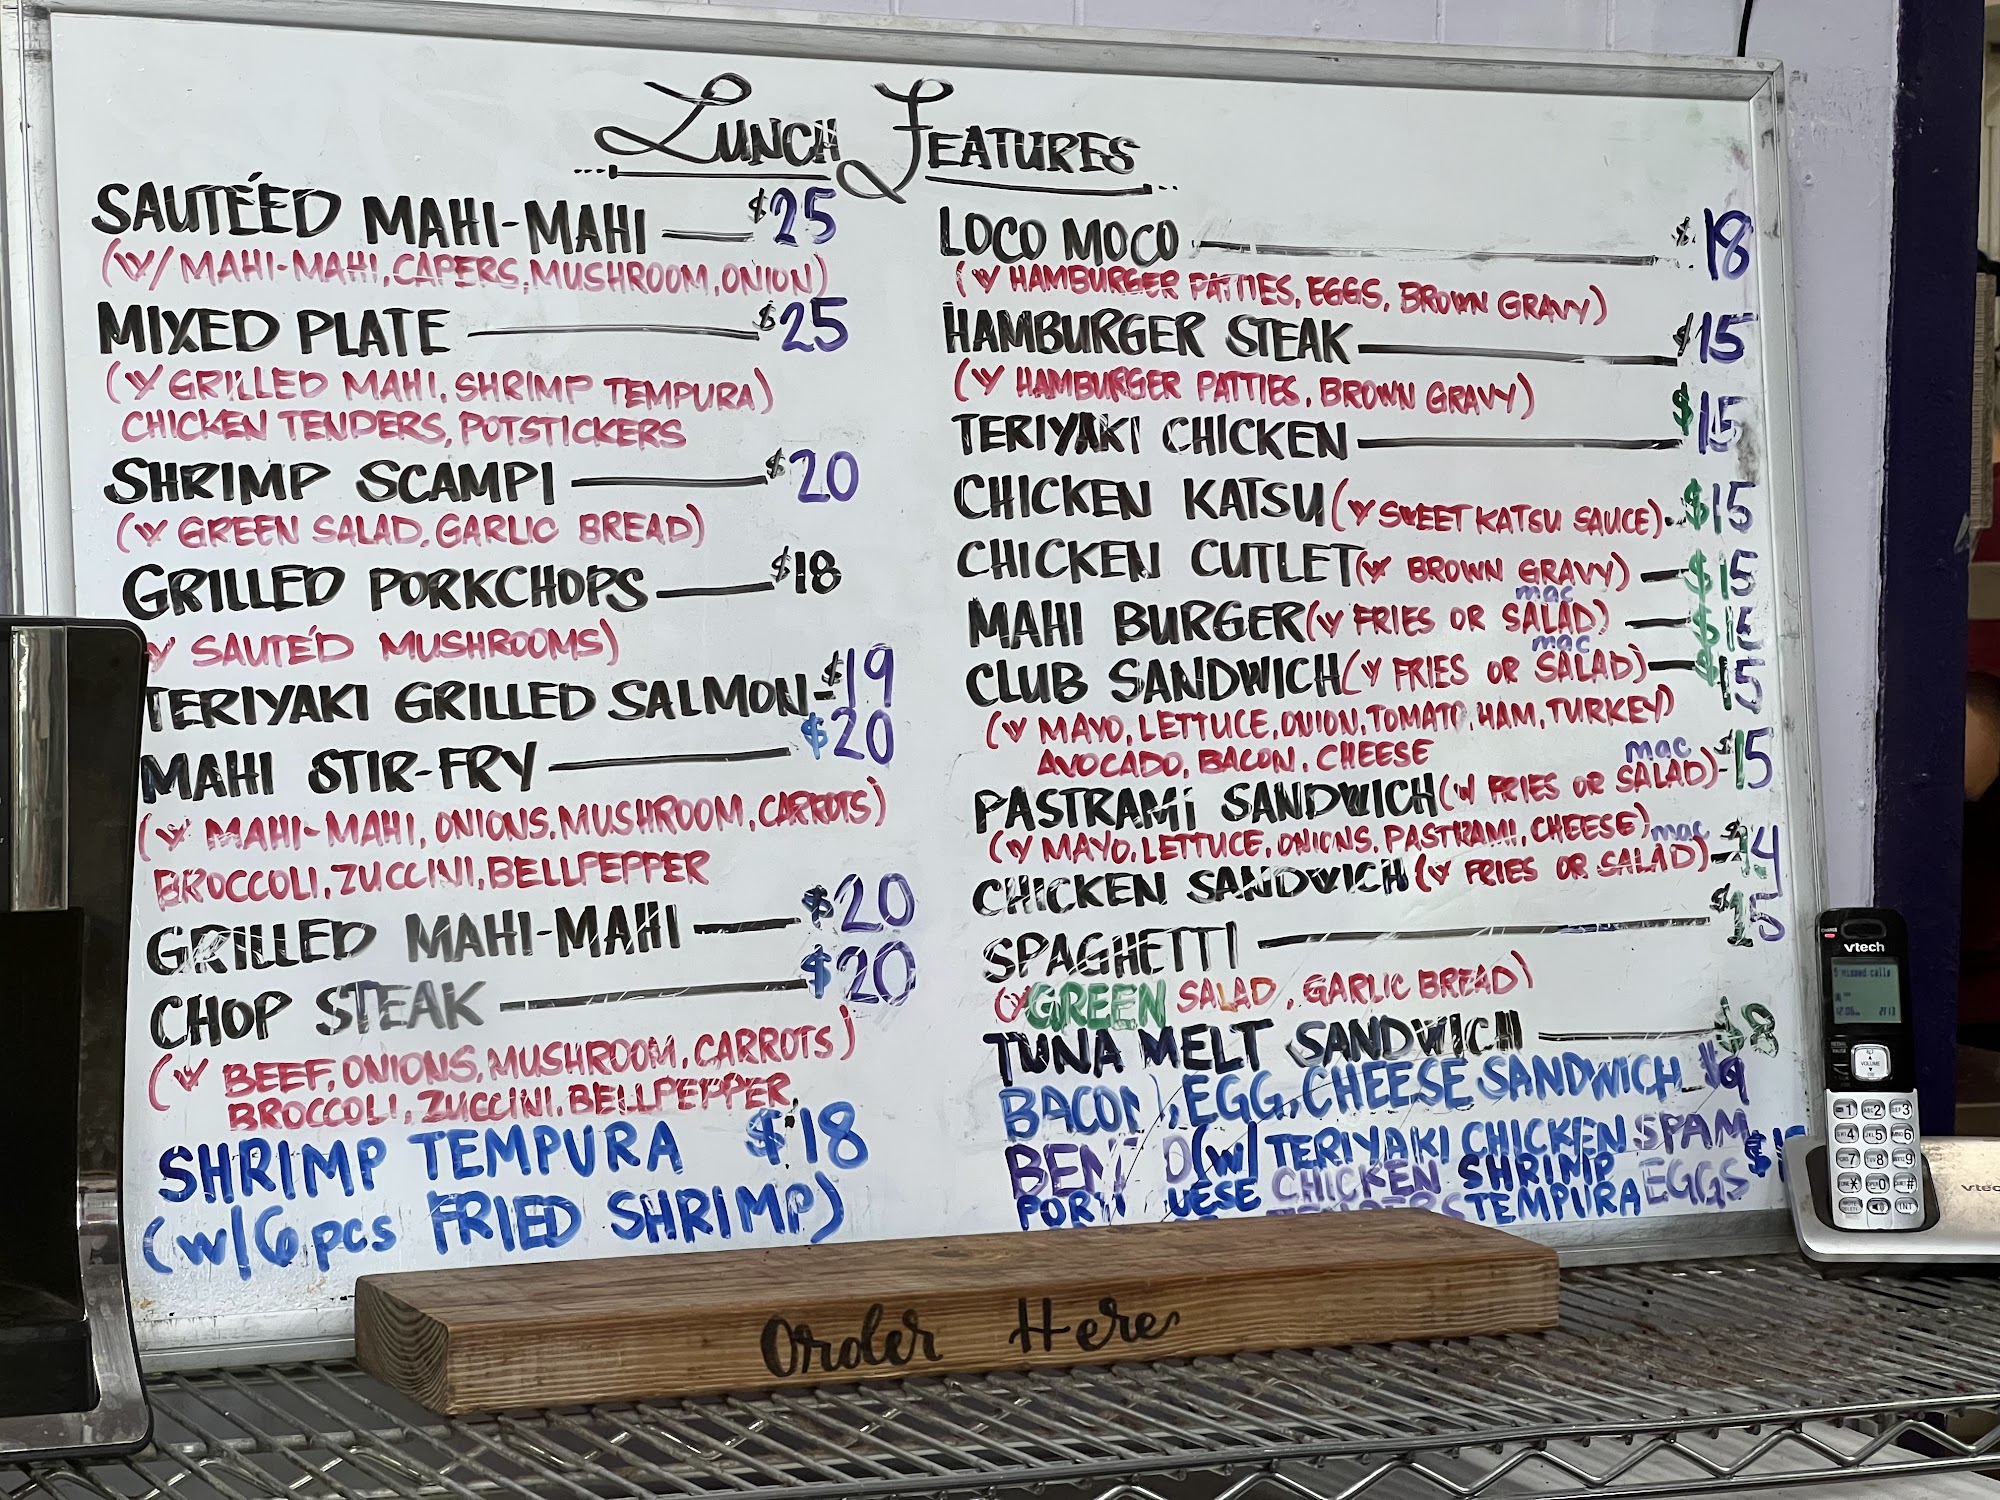 Lunch Features
SAUTÉED MAHI-MAHI $25
(W/ MAHI-MAHI, CAPERS, MUSHROOM, ONION)
MIXED PLATE $25
(W/ GRILLED MAHI, SHRIMP TEMPURA)
CHICKEN TENDERS, POTSTICKERS
SHRIMP SCAMPI $20
(W/ GREEN SALAD, GARLIC BREAD)
GRILLED PORKCHOPS $18
W/ SAUTÉD MUSHROOMS)
TERIYAKI GRILLED SALMON - $19
MAHI STIR-FRY $20
(W/ MAHI-MAHI, ONIONS, MUSHROOM, CARROTS)
BROCCOLI, ZUCCINI, BELLPEPPER
GRILLED MAHI-MAHI $20
CHOP STEAK $20
(W/ BEEF, ONIONS, MUSHROOM, CARROTS)
BROCCOLI, ZUCCINI, BELLPEPPER
SHRIMP TEMPURA $18
(w/ 6 pcs FRIED SHRIMP)
LOCO MOCO $18
(W/ HAMBURGER PATTIES, EGGS, BROWN GRAVY)
HAMBURGER STEAK $15
(W/ HAMBURGER PATTIES, BROWN GRAVY)
TERIYAKI CHICKEN $15
CHICKEN KATSU (W/ SWEET KATSU SAUCE) $15
CHICKEN CUTLET (W/ BROWN GRAVY) $15
mac
MAHI BURGER (W/ FRIES OR SALAD) $15
mac
CLUB SANDWICH (W/ FRIES OR SALAD) $15
(W/ MAYO, LETTUCE, ONION, TOMATO, HAM, TURKEY)
AVOCADO, BACON, CHEESE
mac
PASTRAMI SANDWICH (W/ FRIES OR SALAD) - $15
(W/ MAYO, LETTUCE, ONIONS, PASTRAMI, CHEESE)
mac
CHICKEN SANDWICH (W/ FRIES OR SALAD) - $14
SPAGHETTI $15
(W/ GREEN SALAD, GARLIC BREAD)
TUNA MELT SANDWICH $8
BACON, EGG, CHEESE SANDWICH $9
(w/ TERIYAKI CHICKEN SPAM
CHICKEN SHRIMP EGGS
TEMPURA
Order Here
vtech
5 missed calls
VOLUME